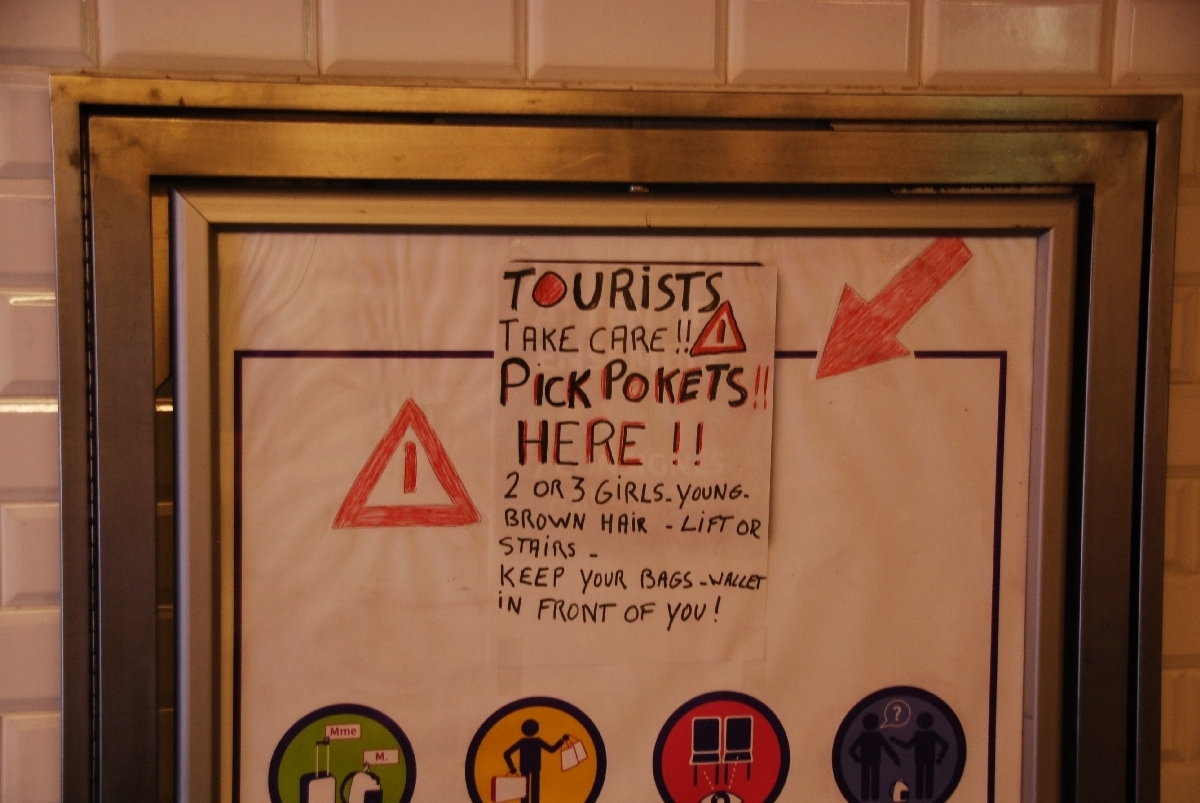 TOURiSTS
TAKE CARE !! !
PiCKPOKETS !!
HERE !!
2 OR 3 GiRLS - YOUNG -
BROWN HAiR - LiFT OR
STAiRS -
KEEP YOUR BAGS - WALLET
iN FRONT OF YOU !
Mme
M.
?